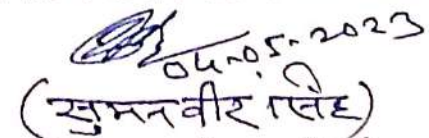 04-05-2023
(सुमन वीर सिंह)